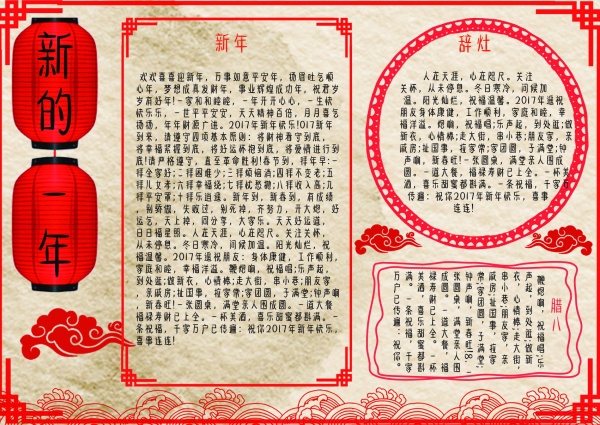 新的
一年
新年
欢欢喜喜迎新年，万事如意平安年，扬眉吐气顺
心年，梦想成真发财年，事业辉煌成功年，祝君岁
岁有好年!一家和和睦睦，一年开开心心，一生快
快乐乐，一世平平安安，天天精神百倍，月月喜气
扬扬，年年财源广进。2017年新年快乐!017新年
到来，请遵守四项基本原则：将财神看守到底，
将幸福紧握到底，将好运怀抱到底，将爱情进行到
底!请严格遵守，直至革命胜利!春节到，拜年早:一
拜全家好;二拜困难少;三拜烦恼消;四拜不变老;五
拜儿女孝;六拜幸福绕;七拜忧愁抛;八拜收入高;九
拜平安罩;十拜乐逍遥。新年到，新春到，前成绩
，别骄傲，失败过，别死掉，齐努力，开大炮，好
运气，天上掉，同分享，大家乐。天天好运道，
日日福星照。人在天涯，心在咫尺。关注关杯，
从未停息。冬日寒冷，问候加温。阳光灿烂，祝
福温馨。2017年遥祝朋友：身体康健，工作顺利，
家庭和睦，幸福洋溢。鞭炮响，祝福唱;乐声起，
到处逛;做新衣，心情棒;走大街，串小巷;朋友家
，亲戚房;扯国事，拉家常;家团圆，子满堂;钟声
响，新春旺!一张圆桌，满堂亲人围成圆。一道大餐
福禄寿财已上全。一杯美酒，喜乐甜蜜都斟满。
一条祝福，千家万户已传遍：祝你2017年新年快乐，
喜事连连!
辞灶
人在天涯，心在咫尺。关注
关杯，从未停息。冬日寒冷，问候加
温。阳光灿烂，祝福温馨。2017年遥祝
朋友身体康健，工作顺利，家庭和睦，幸
福洋溢。炮响，祝福唱;乐声起，到处逛;做
新衣，心情棒;走大街，串小巷;朋友家，亲
戚房;扯国事，拉家常;家团圆，子满堂;钟
声响，新春旺!一张圆桌，满堂亲人围成
圆。一道大餐，福禄寿财已上全。一杯美
酒，喜乐甜蜜都斟满。一条祝福，千家万
户已传遍：祝你2017年新年快乐，喜事
连连!
腊八
鞭炮响，祝福唱;乐
声起，到处逛;做新
衣，心情棒;走大街，
串小巷;朋友家，亲
戚房;扯国事，拉家
常;家团圆，子满堂;
钟声响，新春旺!8.一
张圆桌，满堂亲人围
成圆。一道大餐，福
禄寿财已上全。一杯
美酒，喜乐甜蜜都斟
满。一条祝福，千家
万户已传遍：祝你。